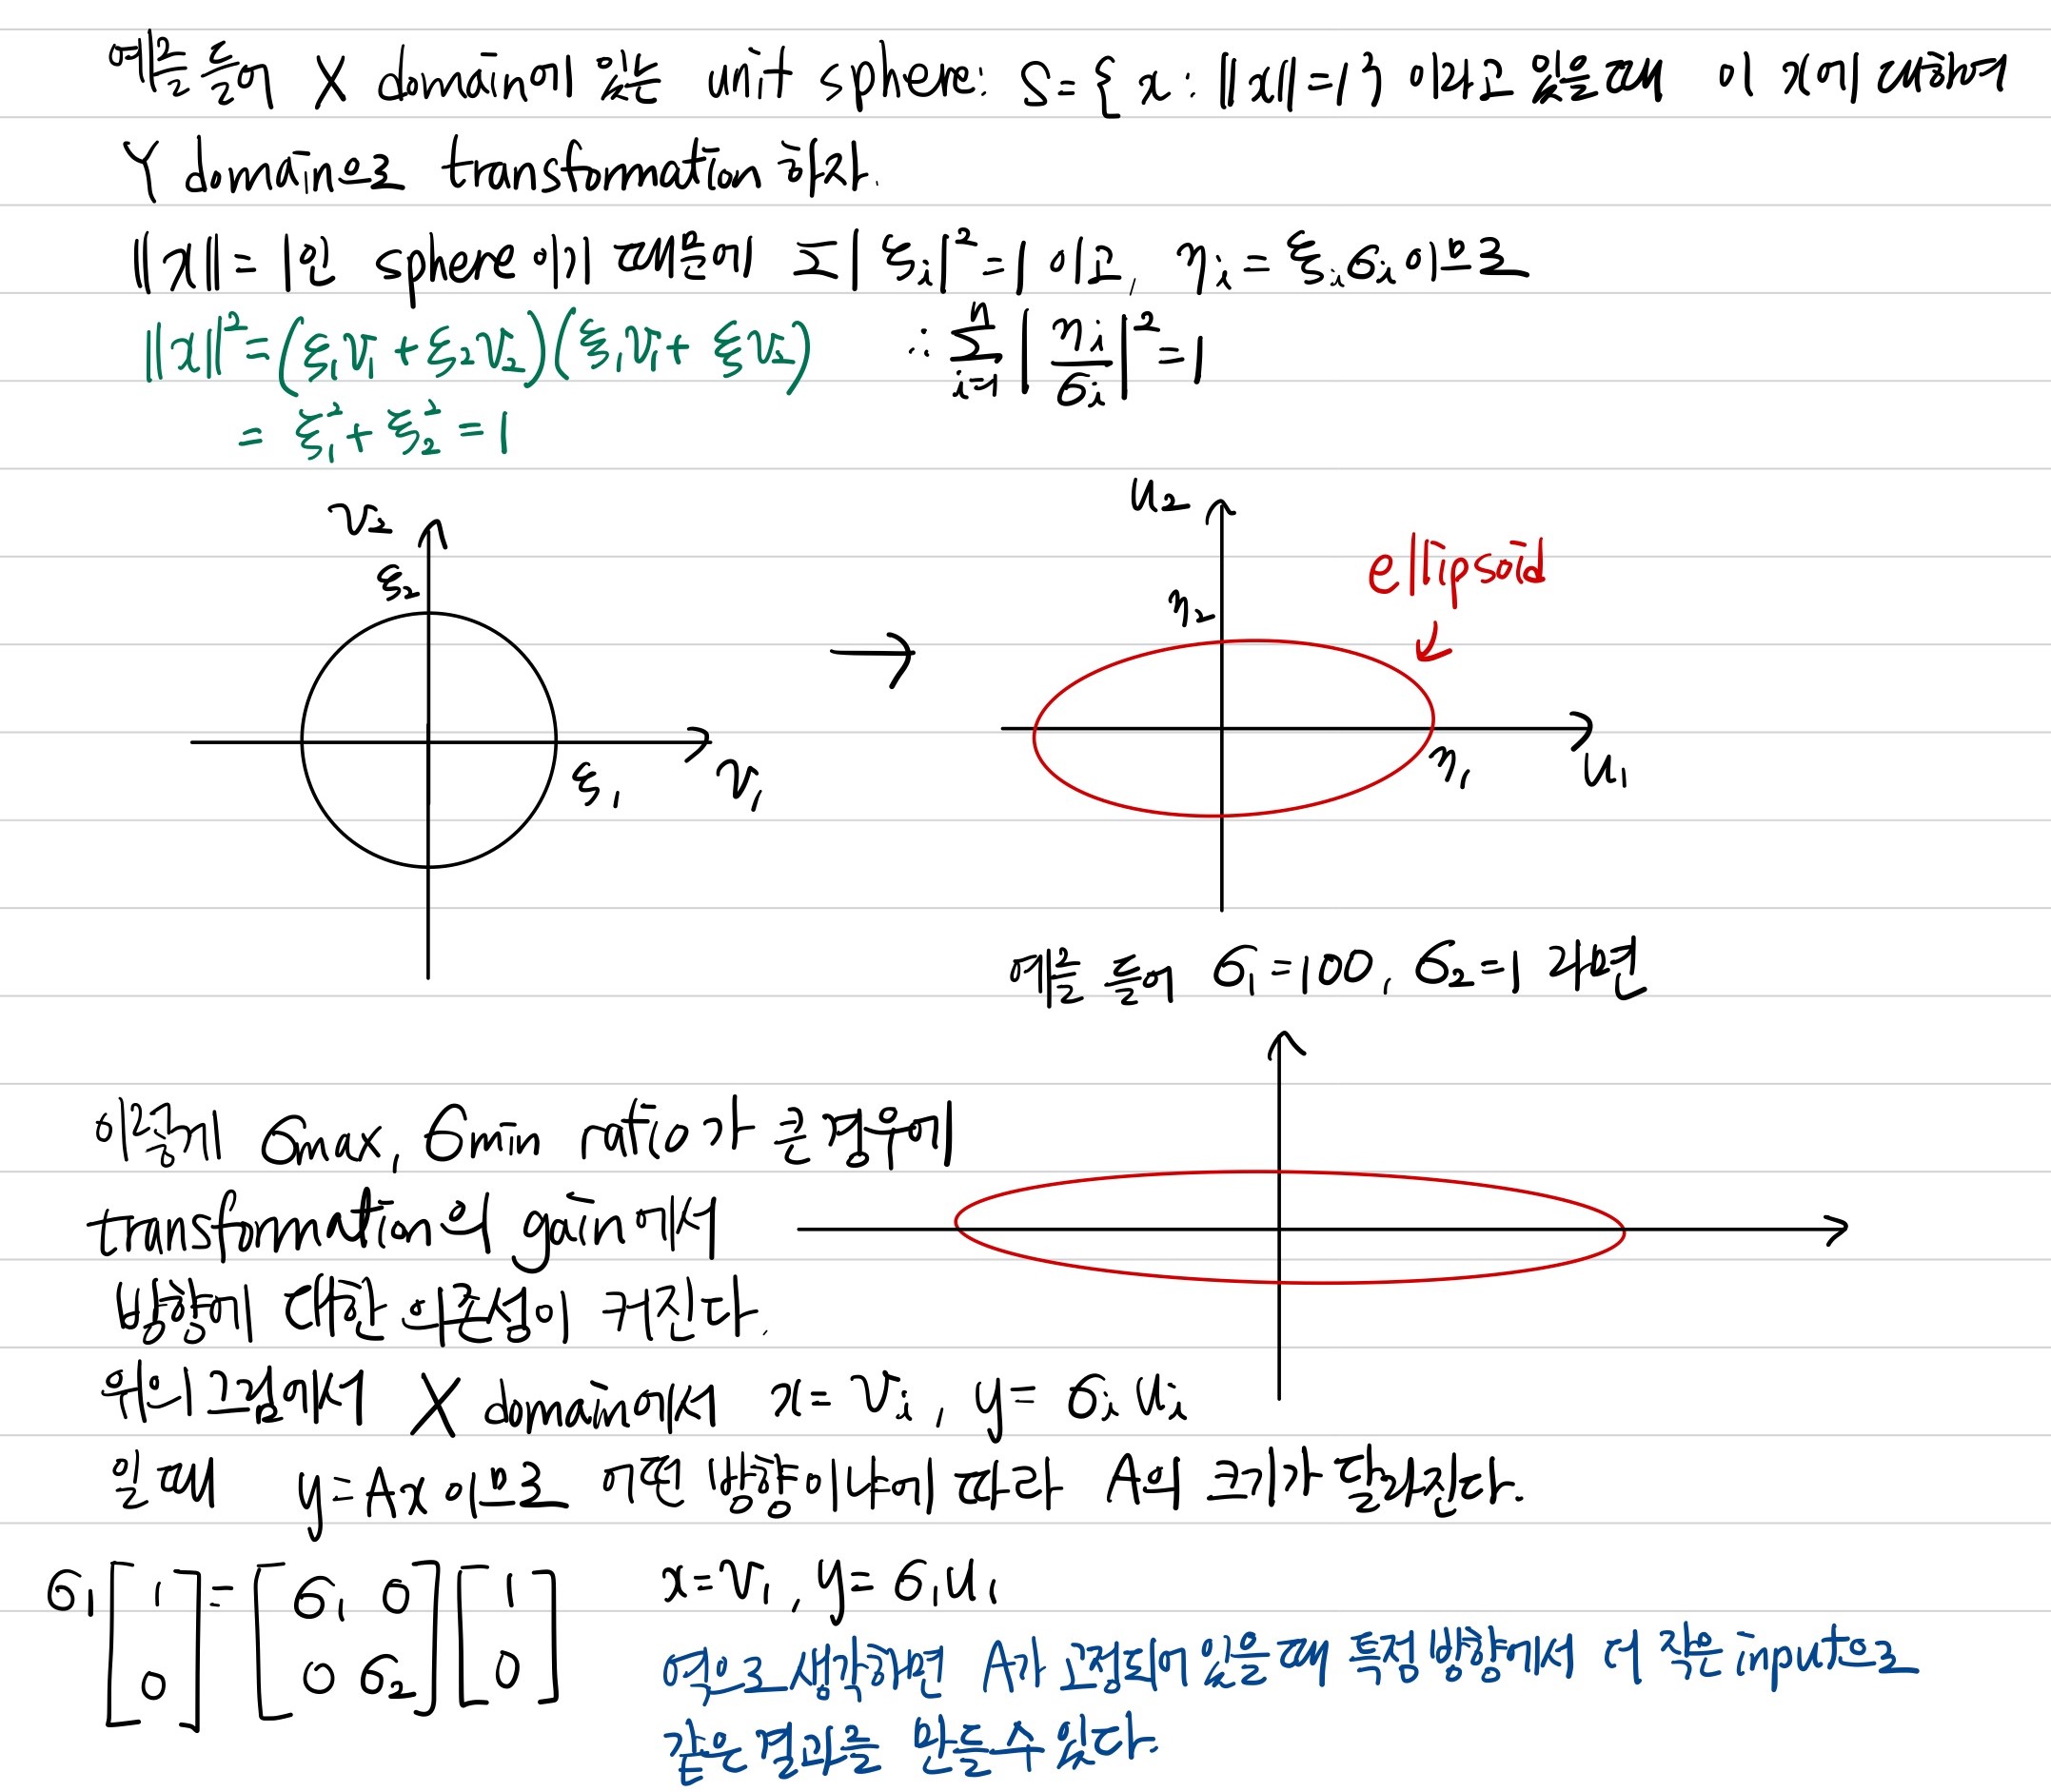 예를 들어 X domain에 있는 unit sphere: S={x: ||x||=1} 이라고 있을 때 이 x에 대하여
Y domain으로 transformation 하자.
||x||=1인 sphere이기 때문에 Σ|ξᵢ|²=1 이고, ηᵢ=ξᵢσᵢ 이므로
||x||²=(ξ₁v₁+ξ₂v₂)(ξ₁v₁+ξv₂) ∴ Σᵢ₌₁ⁿ |ηᵢ/σᵢ|²=1
= ξ₁²+ξ₂²=1
v₂
ξ₂
ξ₁ v₁
→
u₂
ellipsoid
η₂
η₁ u₁
예를 들어 σ₁=100, σ₂=1 라면
이렇게 σmax, σmin ratio가 큰 경우에
transformation의 gain에서
방향에 대한 의존성이 커진다.
위의 그림에서 X domain에서 x=vᵢ, y=σᵢuᵢ
일 때 y=Ax 이므로 어떤 방향이냐에 따라 A의 크기가 달라진다.
σ₁[1 0] = [σ₁ 0 0 σ₂][1 0] x=v₁, y=σ₁u₁
역으로 생각하면 A가 고정되어 있을 때 특정 방향에서 더 작은 input으로
같은 결과를 만들 수 있다.